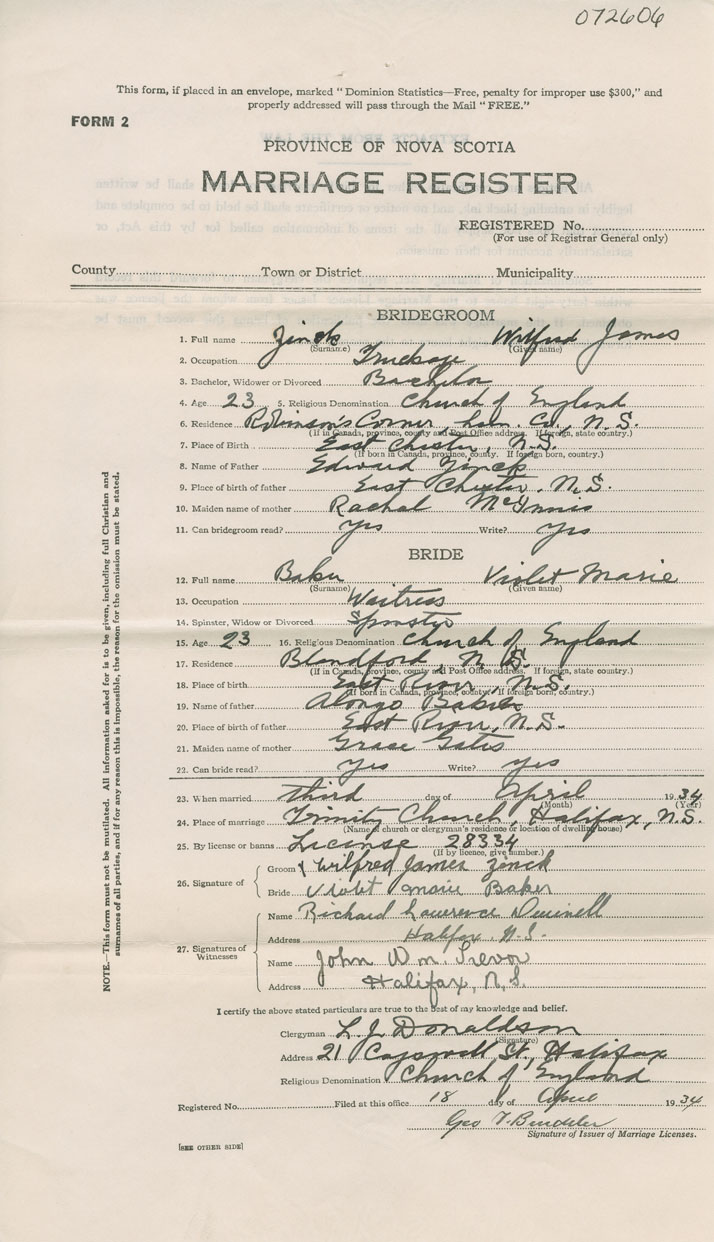 072606
This form, if placed in an envelope, marked "Dominion Statistics—Free, penalty for improper use $300," and
properly addressed will pass through the Mail "FREE."
FORM 2
PROVINCE OF NOVA SCOTIA
MARRIAGE REGISTER
REGISTERED No.
(For use of Registrar General only)
County Town or District Municipality
BRIDEGROOM
1. Full name Zinck Wilfred James
(Surname) (Given name)
2. Occupation
3. Bachelor, Widower or Divorced Bachelor
4. Age 23 5. Religious Denomination Church of England
6. Residence Robinson's Corner, Lun. Co., N.S.
(If in Canada, province, county and Post Office address. If foreign, state country.)
7. Place of Birth East Chester, N.S.
(If born in Canada, province, county. If foreign born, country.)
8. Name of Father Edward Zinck
9. Place of birth of father East Chester, N.S.
10. Maiden name of mother Rachal McGinnis
11. Can bridegroom read? yes Write? yes
BRIDE
12. Full name Baker Violet Marie
(Surname) (Given name)
13. Occupation Waitress
14. Spinster, Widow or Divorced Spinster
15. Age 23 16. Religious Denomination Church of England
17. Residence Blandford, N.S.
(If in Canada, province, county and Post Office address. If foreign, state country.)
18. Place of birth East River, N.S.
(If born in Canada, province, county. If foreign born, country.)
19. Name of father Alonzo Baker
20. Place of birth of father East River, N.S.
21. Maiden name of mother Grace Gates
22. Can bride read? yes Write? yes
23. When married third day of April 1934
(Month) (Year)
24. Place of marriage Trinity Church, Halifax, N.S.
(Name of church or clergyman's residence or location of dwelling house)
25. By license or banns License 28334
(If by licence, give number.)
26. Signature of Groom Wilfred James Zinck
Bride Violet Marie Baker
27. Signatures of Witnesses
Name Richard Lawrence Dwinell
Address Halifax. N.S.
Name John Wm. Trevor
Address Halifax, N.S.
I certify the above stated particulars are true to the best of my knowledge and belief.
Clergyman L. J. Donaldson
(Signature)
Address 21 Cogswell St, Halifax
Religious Denomination Church of England
Registered No. Filed at this office 18 day of April 1934
Geo
Signature of Issuer of Marriage Licenses.
[SEE OTHER SIDE]
NOTE.—This form must not be mutilated. All information asked for is to be given, including full Christian and
surnames of all parties, and if for any reason this is impossible, the reason for the omission must be stated.